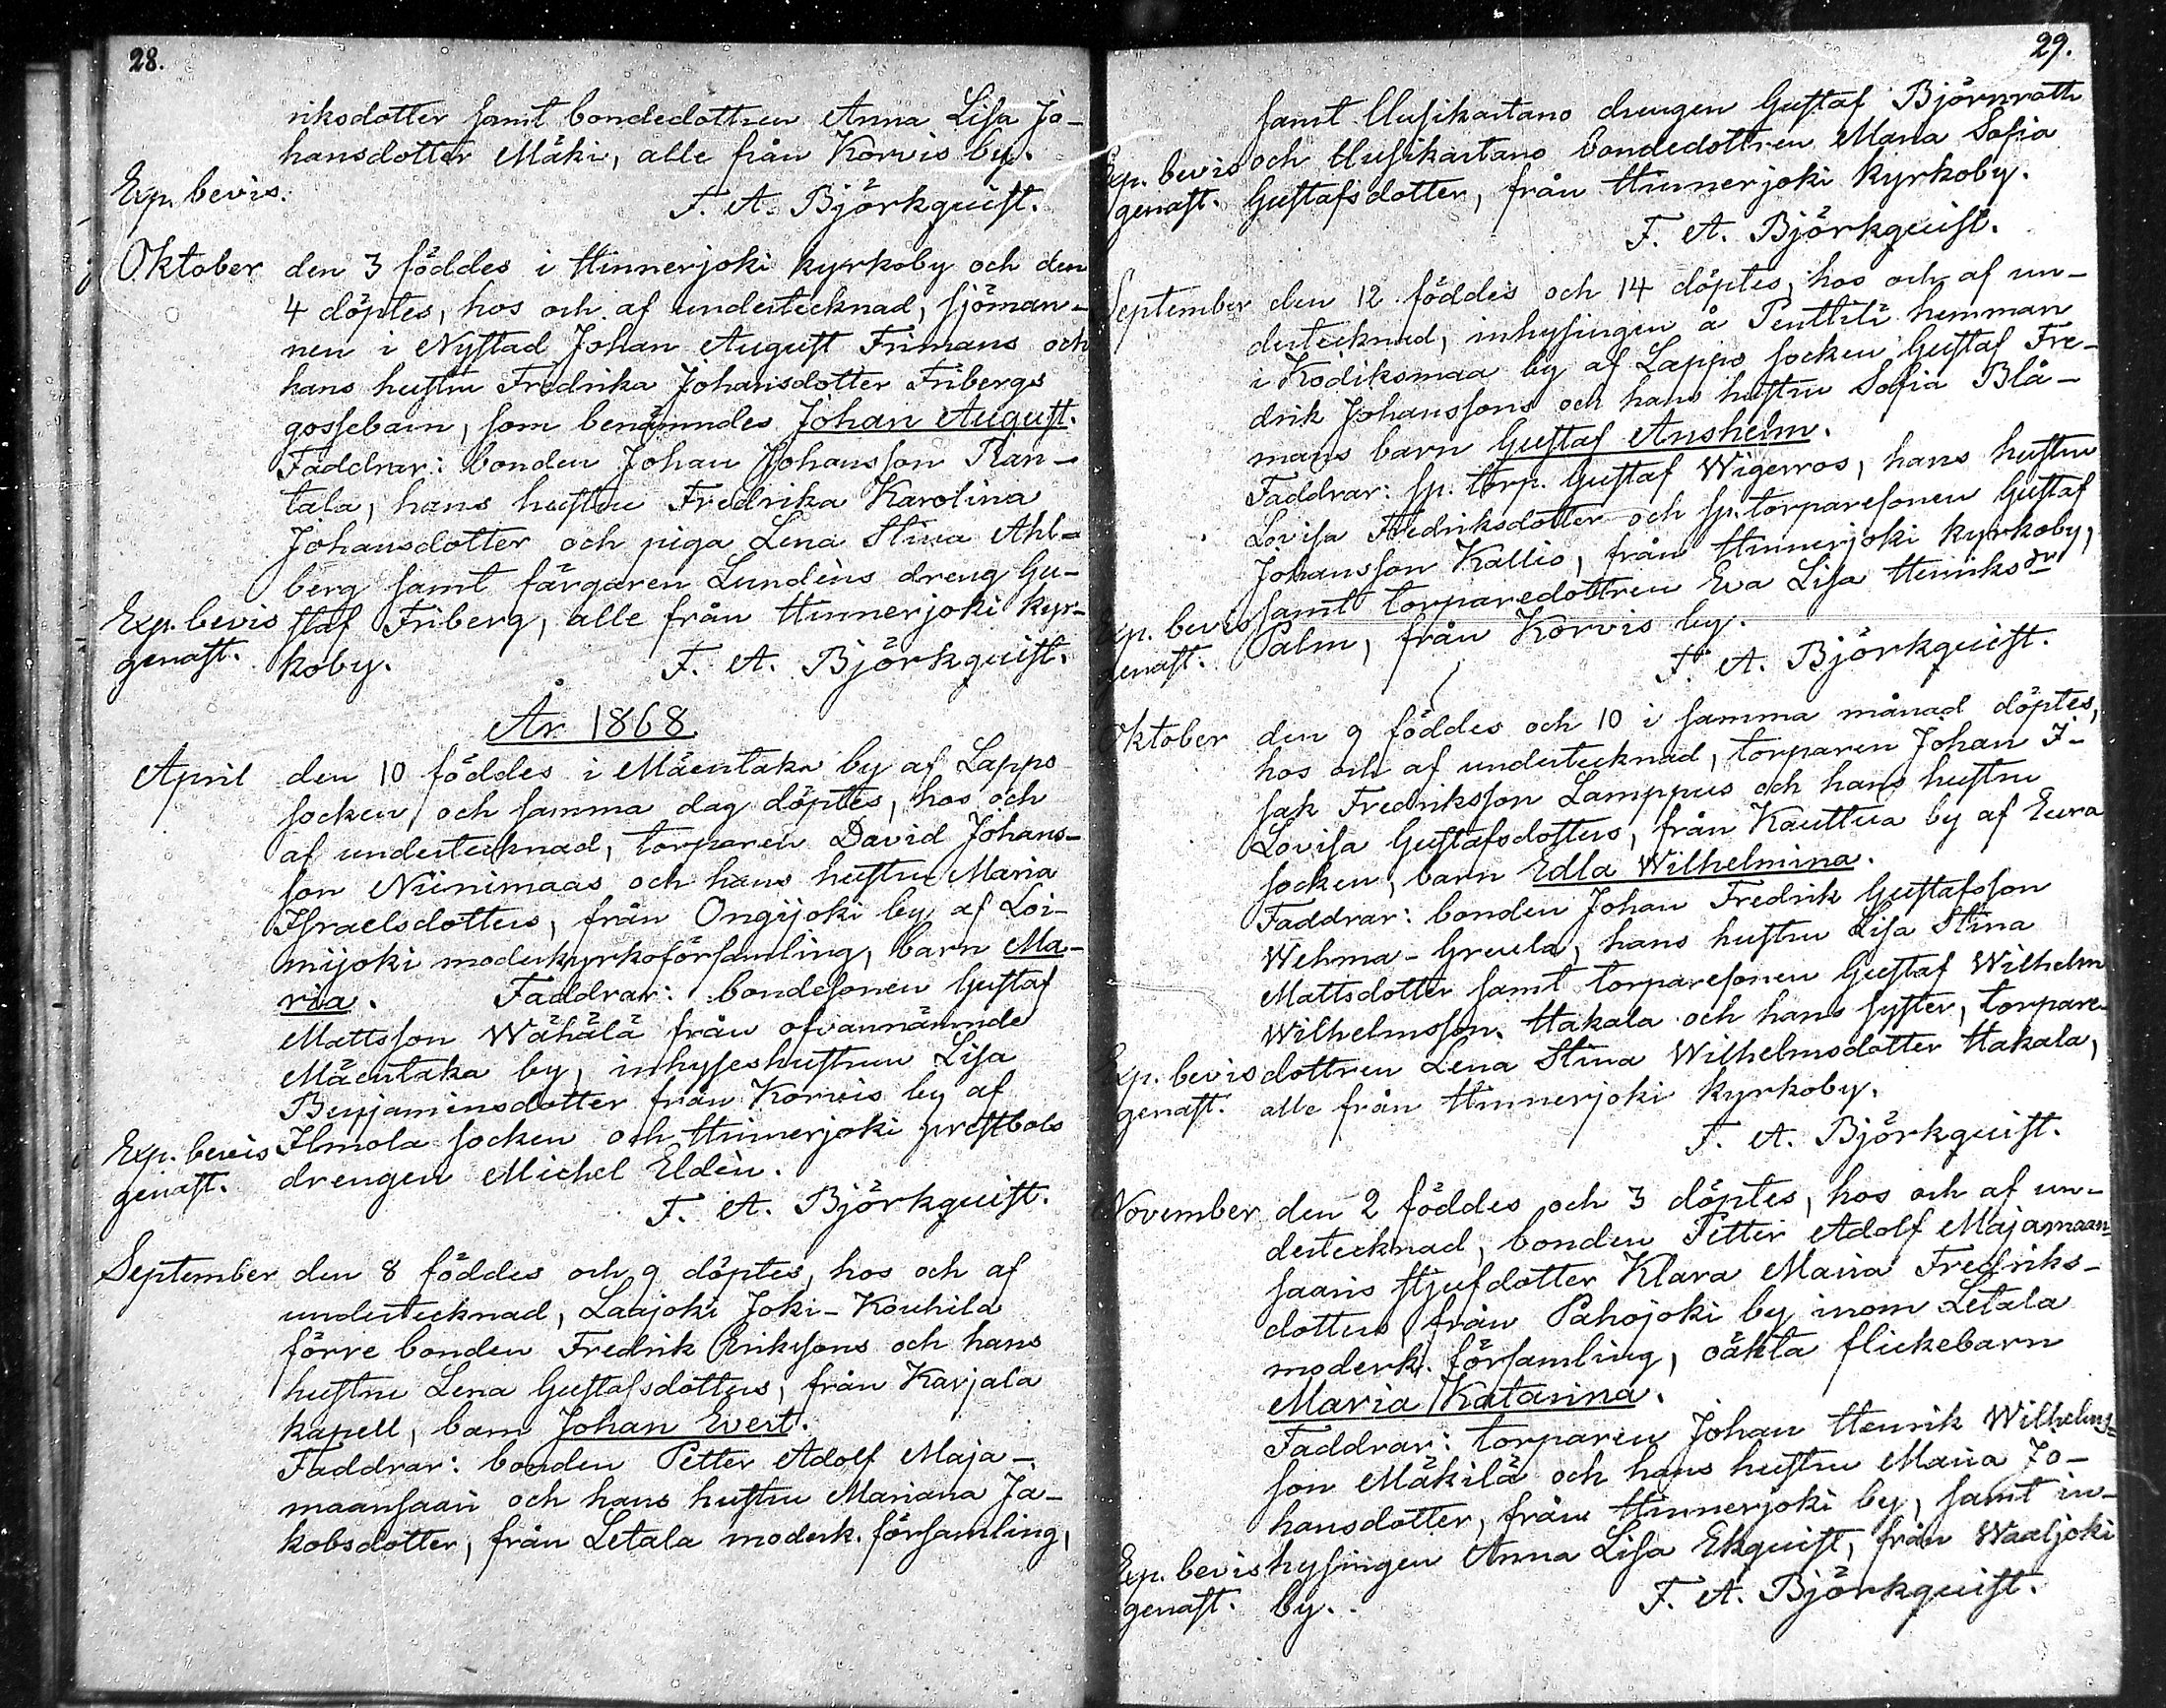 28.
riksdotter samt bondedottren Anna Lisa Jo-
hansdotter Mäki, alle från Korvis by.
Exp. bevis.
F. A. Björkquist.
Oktober den 3 föddes i Hinnerjoki kyrkoby och den
4 döptes, hos och af undertecknad, sjöman-
nen i Nystad Johan August Frimans och
hans hustru Fredrika Johansdotter Fribergs
gossebarn, som benämndes Johan August.
Faddrar: bonden Johan Johansson Ran-
tala, hans hustru Fredrika Karolina
Johansdotter och piga Lena Stiva Ahl-
berg samt färgaren Lundèns dreng Gu-
Exp. bevis staf Friberg, alle från Hinnerjoki kyr-
genast. koby. F. A. Björkquist.
År 1868.
April den 10 föddes i Mäentaka by af Lappo
socken och samma dag döptes, hos och
af undertecknad, torparen David Johans-
son Niinimaas och hans hustru Maria
Israelsdotters, från Ongijoki by af Loi-
mijoki moderkyrkoförsamling, barn Ma-
ria. Faddrar: bondesonen Gustaf
Mattsson Wähälä från ofvannämnde
Mäentaka by, inhyseshustrun Lisa
Benjaminsdotter från Korvis by af
Exp. bevis Ilmola socken och Hinnerjoki prestbols
genast. drengen Michel Eldèn.
F. A. Björkquist.
September den 8 föddes och 9 döptes, hos och af
undertecknad, Laajoki Joki-Kouhila
förre bonden Fredrik Erikssons och hans
hustru Lena Gustafsdotters, från Karjala
kapell, barn Johan Evert.
Faddrar: bonden Petter Adolf Maja-
maansaari och hans hustru Mariana Ja-
kobsdotter, från Letala moderk. församling,
29.
samt Uusikartano drengen Gustaf Björnroth
Exp. bevis och Uusikartano bondedottren Maria Sofia
genast. Gustafsdotter, från Hinnerjoki kyrkoby.
F. A. Björkquist.
September den 12 föddes och 14 döptes, hos och af un-
dertecknad, inhysingen å Penttili hemman
i Kodiksmaa by af Lappo socken Gustaf Fre-
drik Johanssons och hans hustru Sofia Blå-
mans barn Gustaf Anshelm.
Faddrar: sp. torp. Gustaf Wigerros, hans hustru
Lovisa Fredriksdotter och sp. torparesonen Gustaf
Johansson Kallio, från Hinnerjoki kyrkoby,
Exp. bevis samt torparedottren Eva Lisa Henriksdr
genast. Palm, från Korvis by.
F. A. Björkquist.
Oktober den 9 föddes och 10 i samma månad döptes,
hos och af undertecknad, torparen Johan I-
sak Fredriksson Lamppus och hans hustru
Lovisa Gustafsdotters, från Kauttua by af Eura
socken, barn Edla Wilhelmina.
Faddrar: bonden Johan Fredrik Gustafsson
Wehma-Greula, hans hustru Lisa Stina
Mattsdotter samt torparesonen Gustaf Wilhelm
Wilhelmsson Hakala och hans syster, torpare-
Exp. bevis dottren Lena Stina Wilhelmsdotter Hakala,
genast. alle från Hinnerjoki kyrkoby.
F. A. Björkquist.
November den 2 föddes och 3 döptes, hos och af un-
dertecknad, bonden Petter Adolf Majamaan-
saaris stjufdotter Klara Maria Fredriks-
dotters från Pahojoki by inom Letala
moderk. församling, oäkta flickebarn
Maria Katarina.
Faddrar: torparen Johan Henrik Wilhelms-
son Mäkilä och hans hustru Maria Jo-
hansdotter, från Hinnerjoki by, samt in-
Exp. bevis hysingen Anna Lisa Ekquist, från Waaljoki
genast. by. F. A. Björkquist.